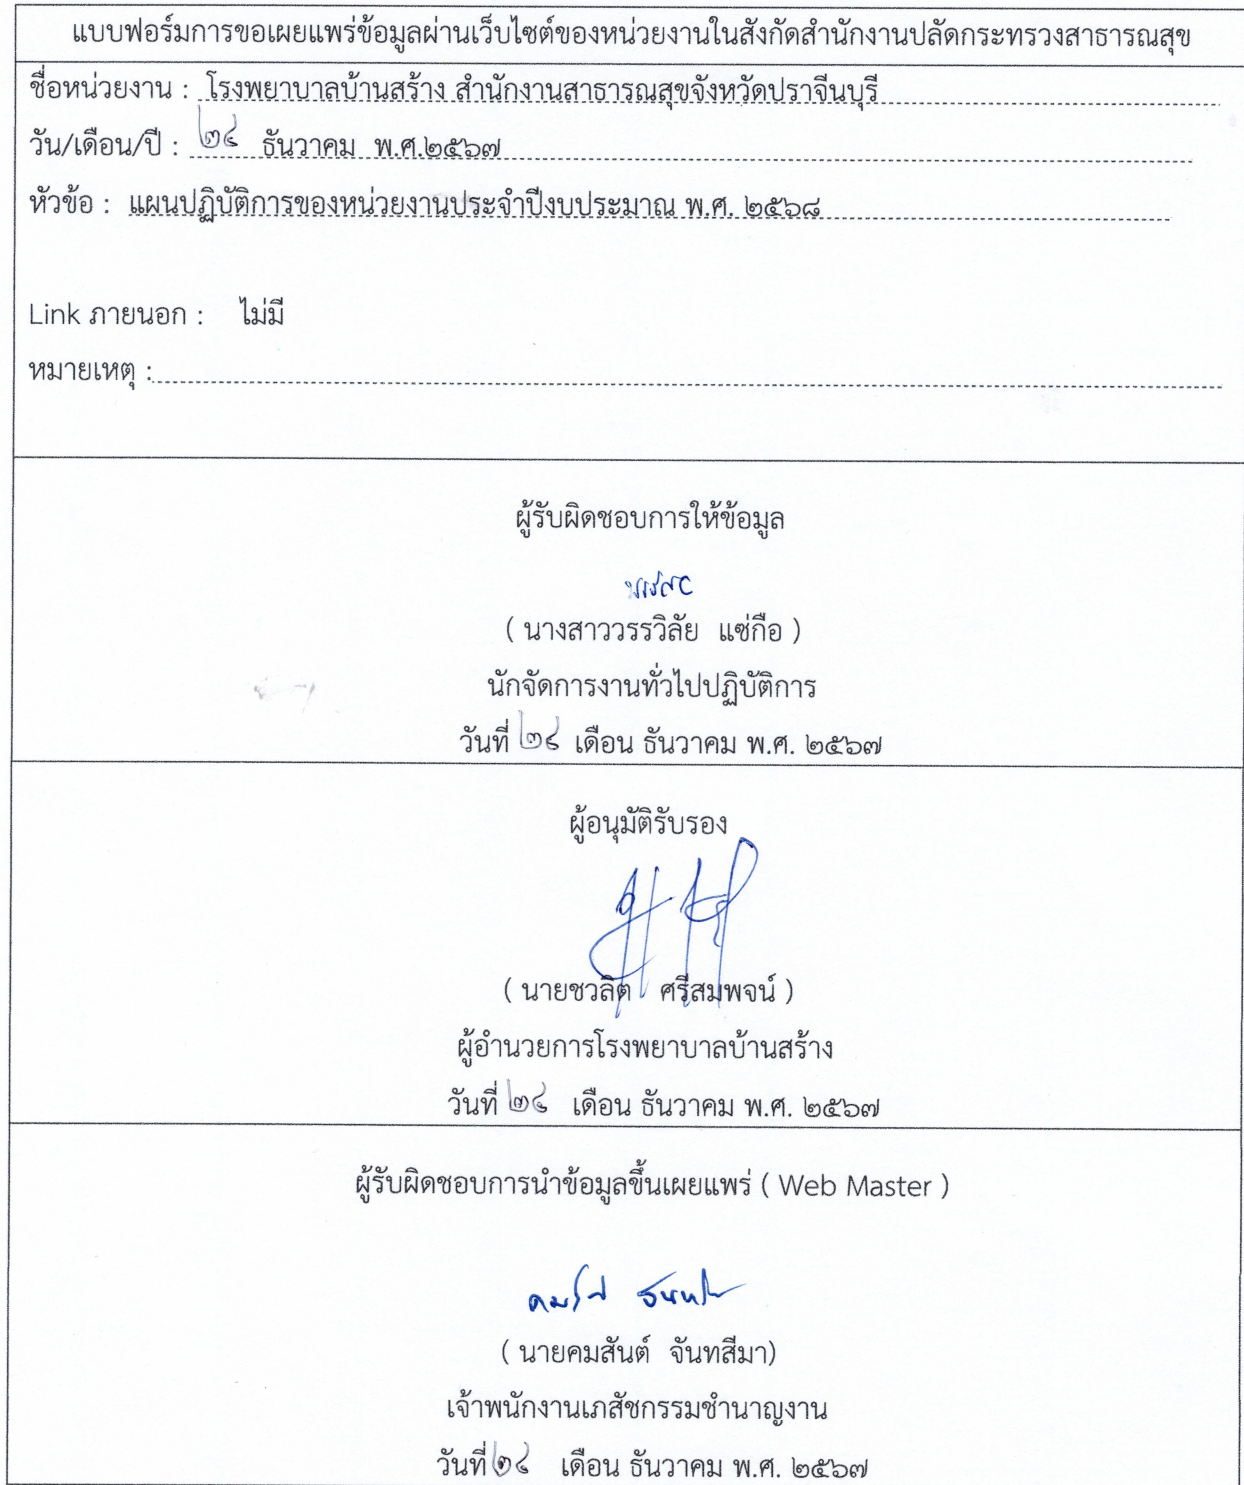 แบบฟอร์มการขอเผยแพร่ข้อมูลผ่านเว็บไซต์ของหน่วยงานในสังกัดสำนักงานปลัดกระทรวงสาธารณสุข
ชื่อหน่วยงาน : โรงพยาบาลบ้านสร้าง สำนักงานสาธารณสุขจังหวัดปราจีนบุรี
วัน/เดือน/ปี : ๒๔ ธันวาคม พ.ศ.๒๕๖๗
หัวข้อ : แผนปฏิบัติการของหน่วยงานประจำปีงบประมาณ พ.ศ. ๒๕๖๘
Link ภายนอก : ไม่มี
หมายเหตุ :
ผู้รับผิดชอบการให้ข้อมูล
( นางสาววรรวิลัย แซ่กือ )
นักจัดการงานทั่วไปปฏิบัติการ
วันที่ ๒๔ เดือน ธันวาคม พ.ศ. ๒๕๖๗
ผู้อนุมัติรับรอง
( นายชวลิต ศรีสมพจน์ )
ผู้อำนวยการโรงพยาบาลบ้านสร้าง
วันที่ ๒๔ เดือน ธันวาคม พ.ศ. ๒๕๖๗
ผู้รับผิดชอบการนำข้อมูลขึ้นเผยแพร่ ( Web Master )
( นายคมสันต์ จันทสีมา)
เจ้าพนักงานเภสัชกรรมชำนาญงาน
วันที่ ๒๔ เดือน ธันวาคม พ.ศ. ๒๕๖๗